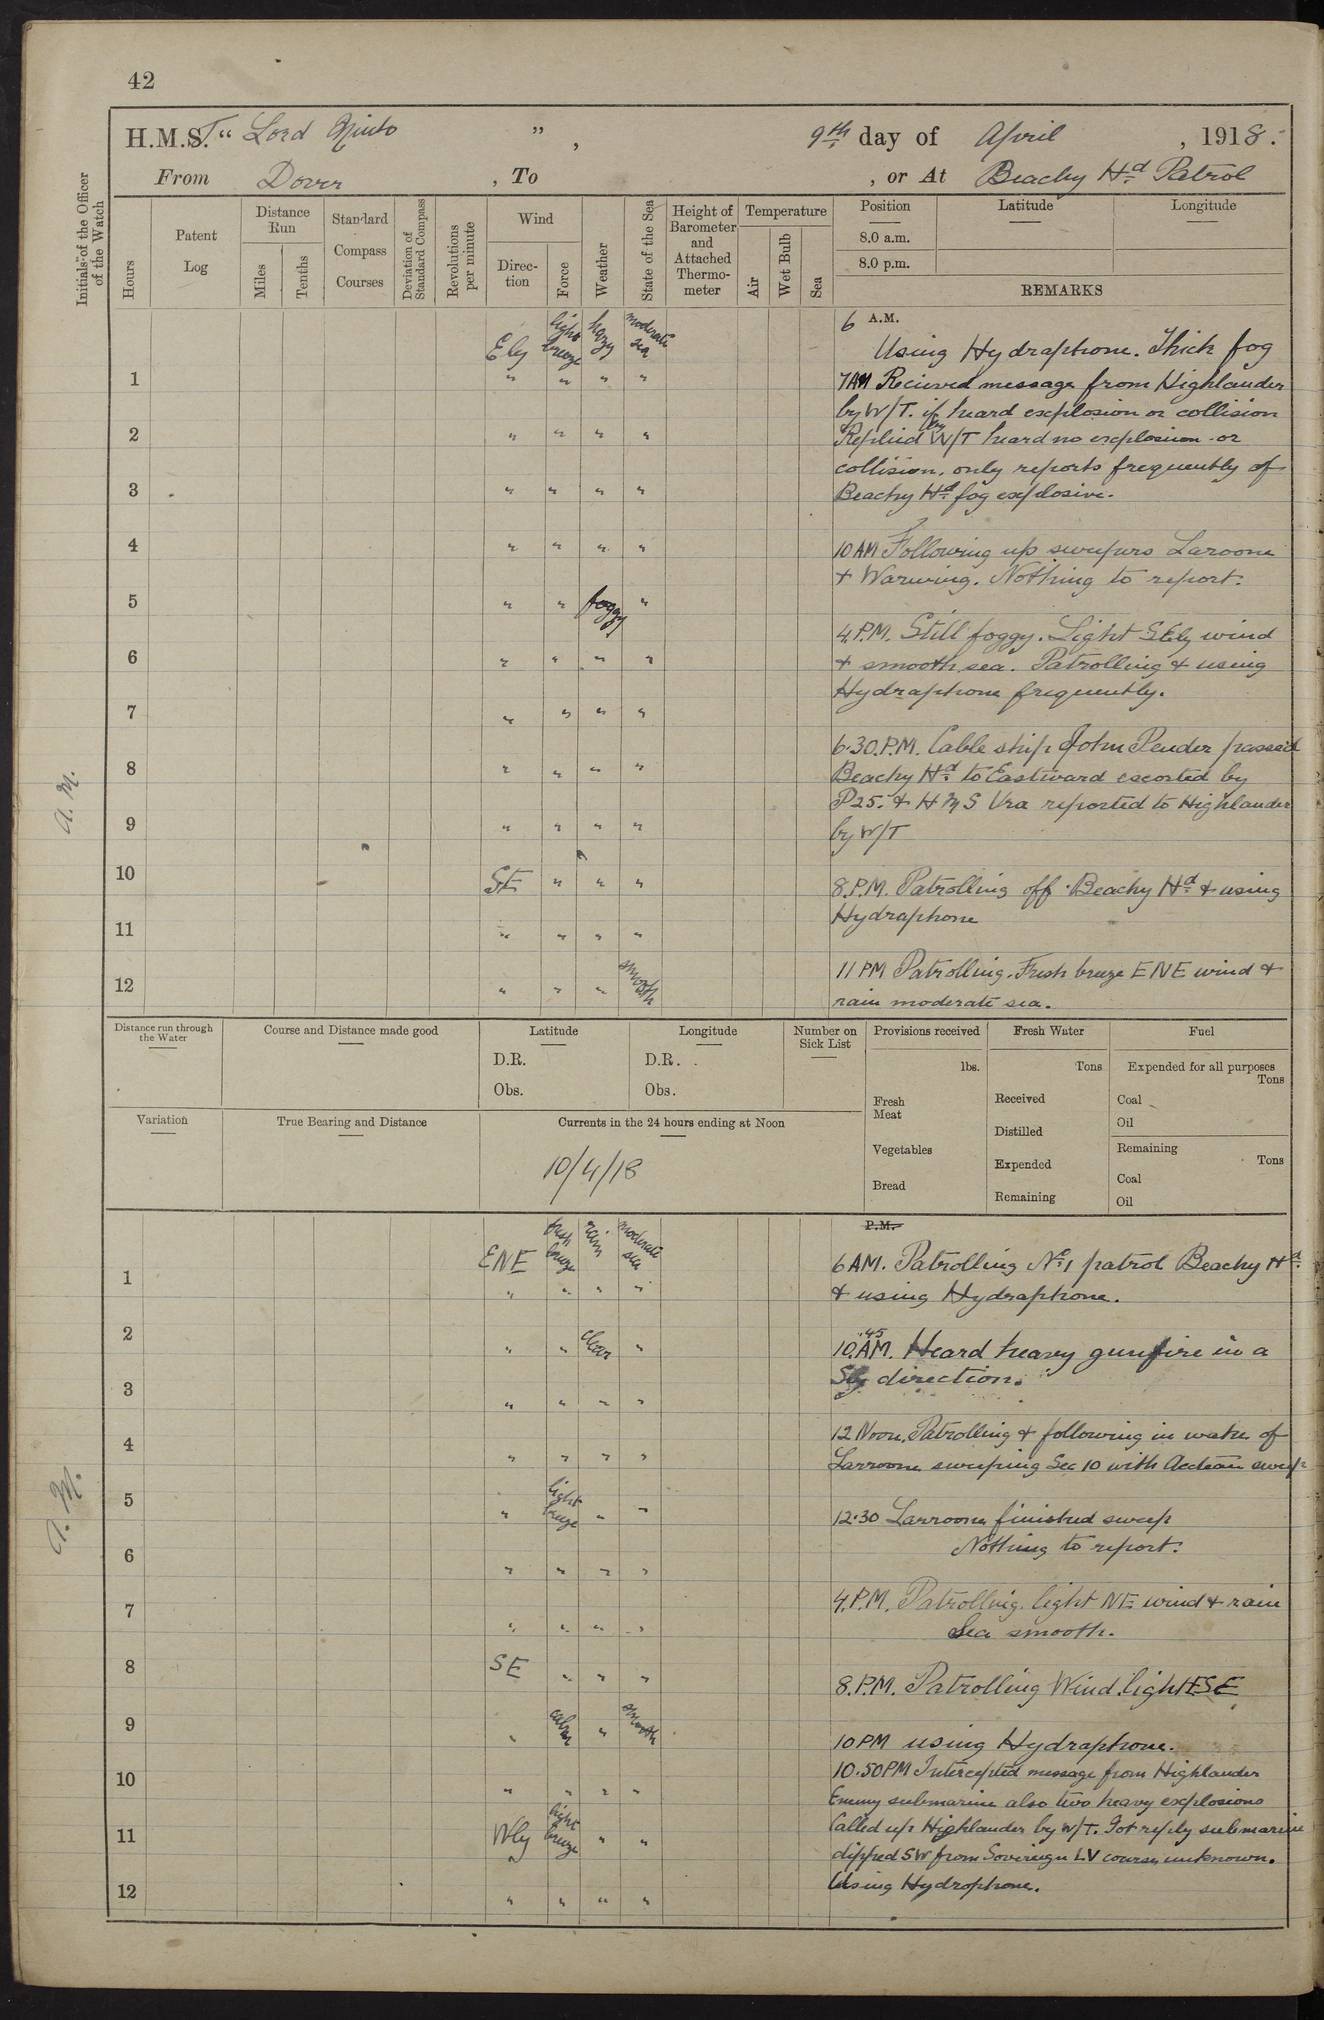 42
H.M.S.T "Lord Minto", 9th day of April, 1918.
From Dover, To , or At Beachy Hd Patrol
Initials of the Officer of the Watch
Hours
Patent Log
Distance Run
Miles
Tenths
Standard Compass Courses
Deviation of Standard Compass
Revolutions per minute
Wind
Direction
Force
Weather
State of the Sea
Height of Barometer and Attached Thermometer
Temperature
Air
Wet Bulb
Sea
Position Latitude Longitude
8.0 a.m.
8.0 p.m.
REMARKS
Ely light breeze hazy moderate sea
1 " " " "
2 " " " "
3 " " " "
4 " " " "
5 " " foggy "
6 " " " "
7 " " " "
8 " " " "
9 " " " "
10 SE " " "
11 " " " "
12 " " " smooth
A.M.
6 A.M.
Using Hydraphone. Thick fog
7AM Recieved message from Highlander
by W/T. if heard explosion or collision
Replied by W/T heard no explosion or
collision, only reports frequently of
Beachy Hd fog explosive.
10AM Following up sweepers Laroone
+ Warwing. Nothing to report.
4.P.M. Still foggy. Light SEly wind
+ smooth sea. Patrolling + using
Hydraphone frequently.
6.30.P.M. Cable ship John Pender passed
Beachy Hd to Eastward escorted by
P25. + H M S Ura reported to Highlander
by W/T
8.P.M. Patrolling off Beachy Hd + using
Hydraphone
11 PM Patrolling. Fresh breeze ENE wind +
rain moderate sea.
Distance run through the Water
Course and Distance made good
Latitude
D.R.
Obs.
Longitude
D.R.
Obs.
Number on Sick List
Provisions received
lbs.
Fresh Meat
Vegetables
Bread
Fresh Water
Tons
Received
Distilled
Expended
Remaining
Fuel
Expended for all purposes
Tons
Coal
Oil
Remaining
Tons
Coal
Oil
Variation
True Bearing and Distance
Currents in the 24 hours ending at Noon
10/4/18
P.M.
ENE fresh breeze rain moderate sea
1 " " " "
2 " " clear "
3 " " " "
4 " " " "
5 " light breeze " "
6 " " " "
7 " " " "
8 SE " " "
9 " calm " smooth
10 " " " "
11 Wly light breeze " "
12 " " " "
6AM. Patrolling No 1 patrol Beachy Hd
+ using Hydraphone.
10.45 AM. Heard heavy gunfire in a
Sly direction.
12 Noon. Patrolling + following in wake of
Larroone sweeping Sec 10 with Actaeon sweep
12.30 Larroone finished sweep
Nothing to report.
4.P.M. Patrolling. light NE wind + rain
Sea smooth.
8.P.M. Patrolling Wind. light ESE
10PM using Hydraphone.
10.50PM Intercepted message from Highlander
Enemy submarine also two heavy explosions
Called up Highlander by W/T. Got reply submarine
dipped SW from Sovereign LV course unknown.
Using Hydrophone.